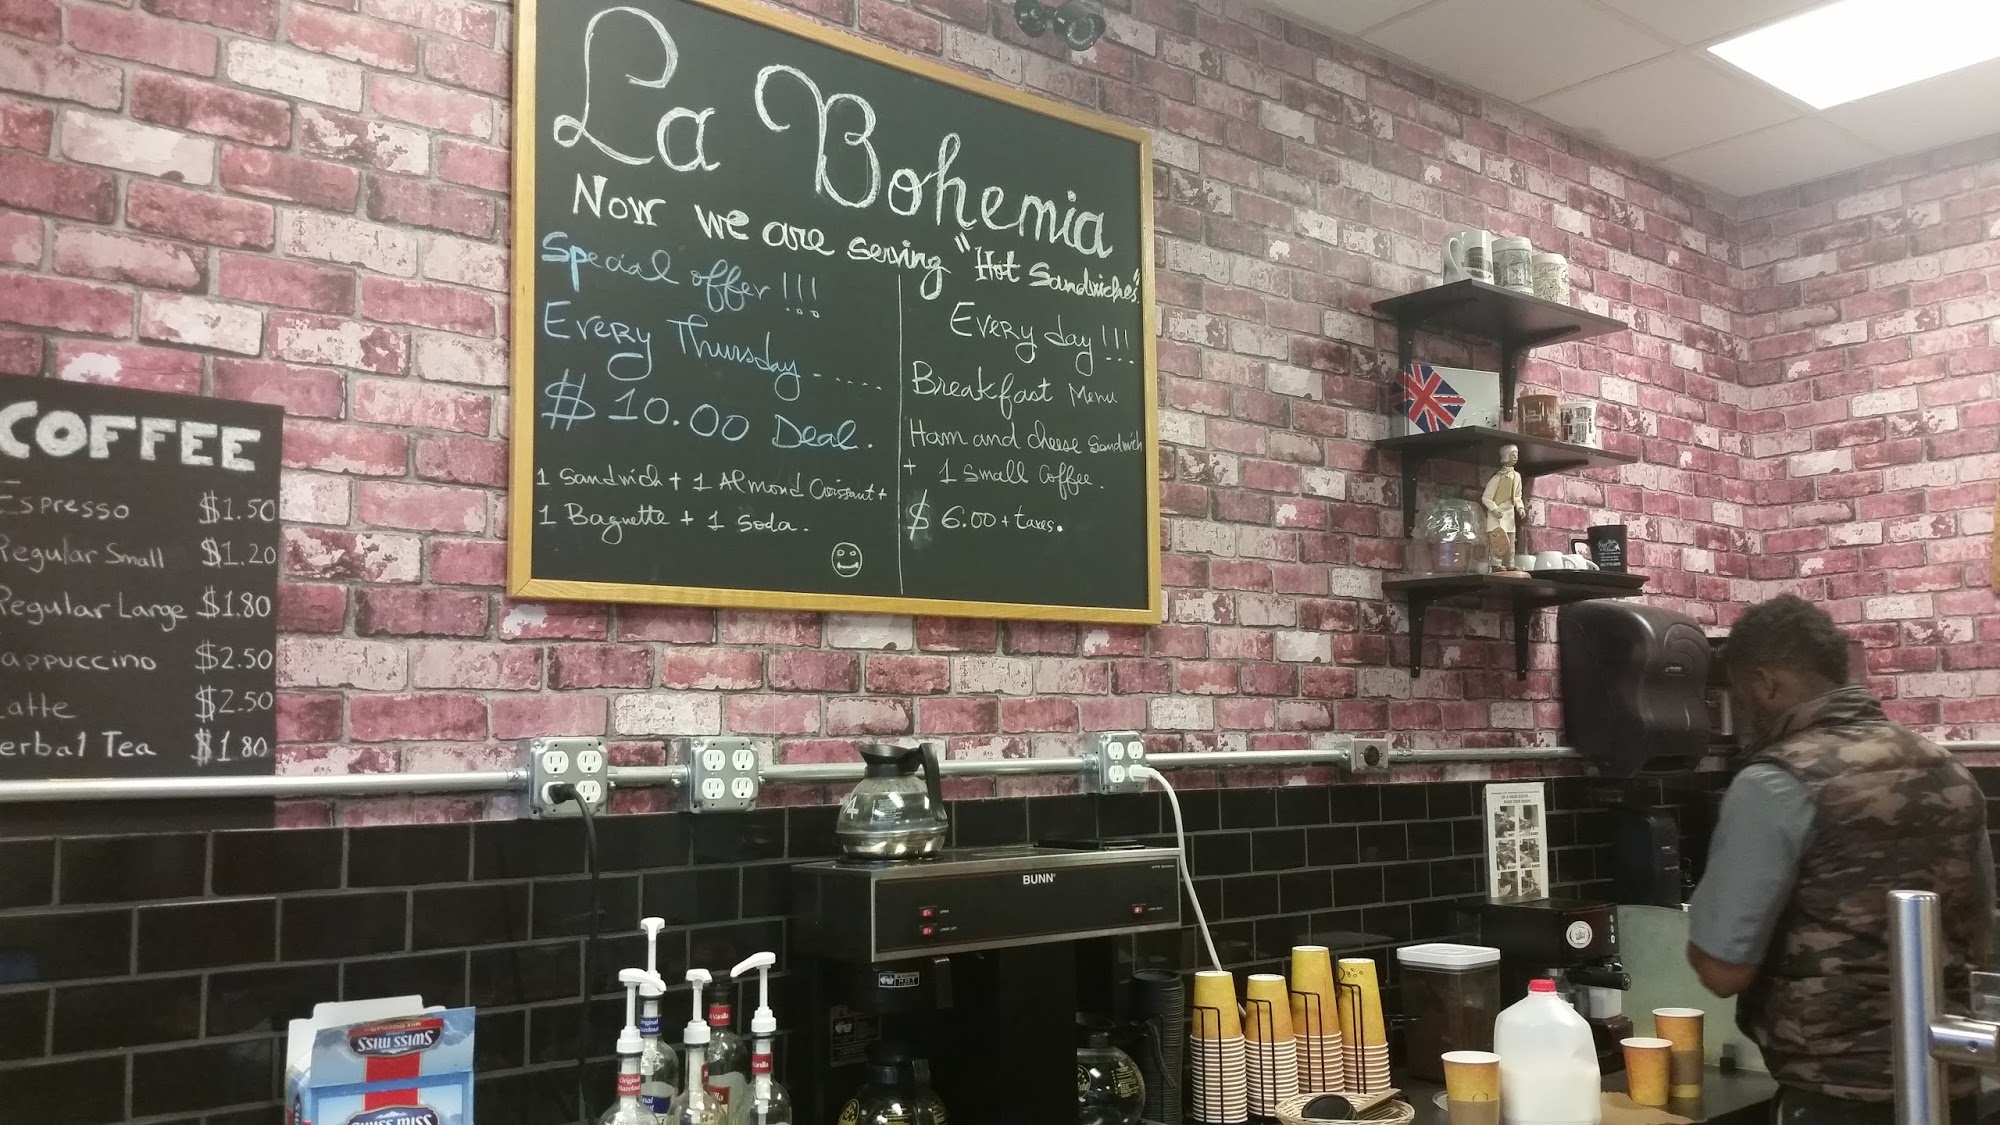 La Bohemia
Now we are serving "Hot Sandwiches"
Special offer !!!
Every Thursday .....
$ 10.00 Deal.
1 Sandwich + 1 Almond Croissant +
1 Baguette + 1 Soda.
Every day !!!
Breakfast Menu
Ham and cheese Sandwich
+ 1 Small Coffee.
$ 6.00 + taxes.
COFFEE
Espresso $1.50
Regular Small $1.20
Regular Large $1.80
appuccino $2.50
Latte $2.50
erbal Tea $1.80
BUNN
SWISS MISS
SWISS MISS
Original
Hazelnut
Vanilla
Vanilla